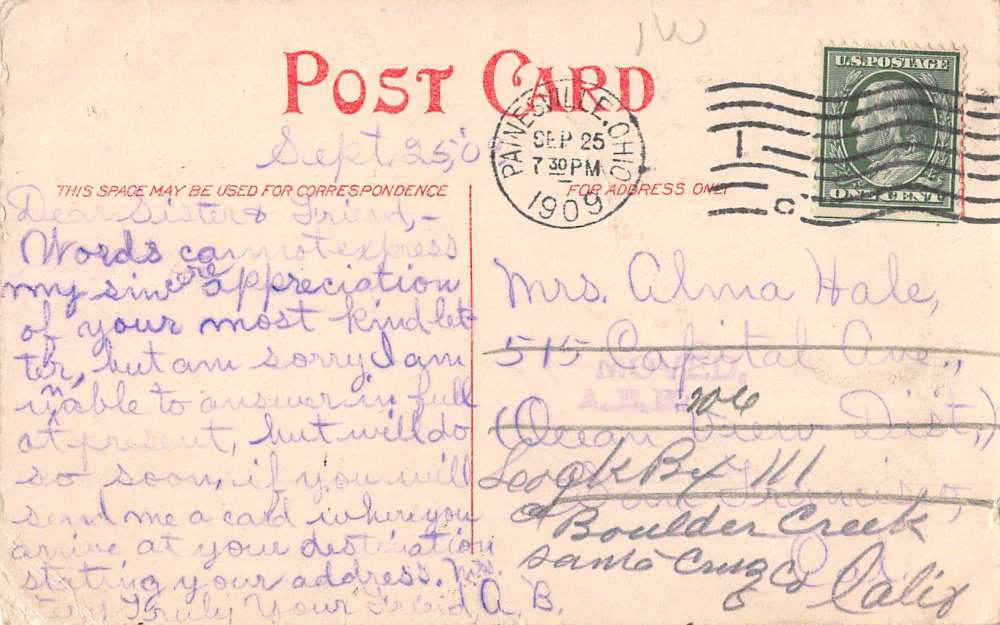 1W
POST CARD
U.S. POSTAGE
ONE CENT
PAINESVILLE, OHIO
SEP 25
7 30 PM
1909
1
C
Sept. 25, '0
THIS SPACE MAY BE USED FOR CORRESPONDENCE
FOR ADDRESS ONLY
Dear Sister & Friend,-
Words cannot express
my sincere appreciation
of your most kind let-
ter, but am sorry I am
unable to answer in full
at present, but will do
so soon, if you will
send me a card when you
arrive at your destination
stating your address. Mrs.
Truly Your Friend, A. B.
Mrs. Alma Hale,
515 Capital Ave.,
MOVED,
(Ocean View Dist.,)
San Francisco,
Lock Bx 111
Boulder Creek
Santa Cruz Co
Calif